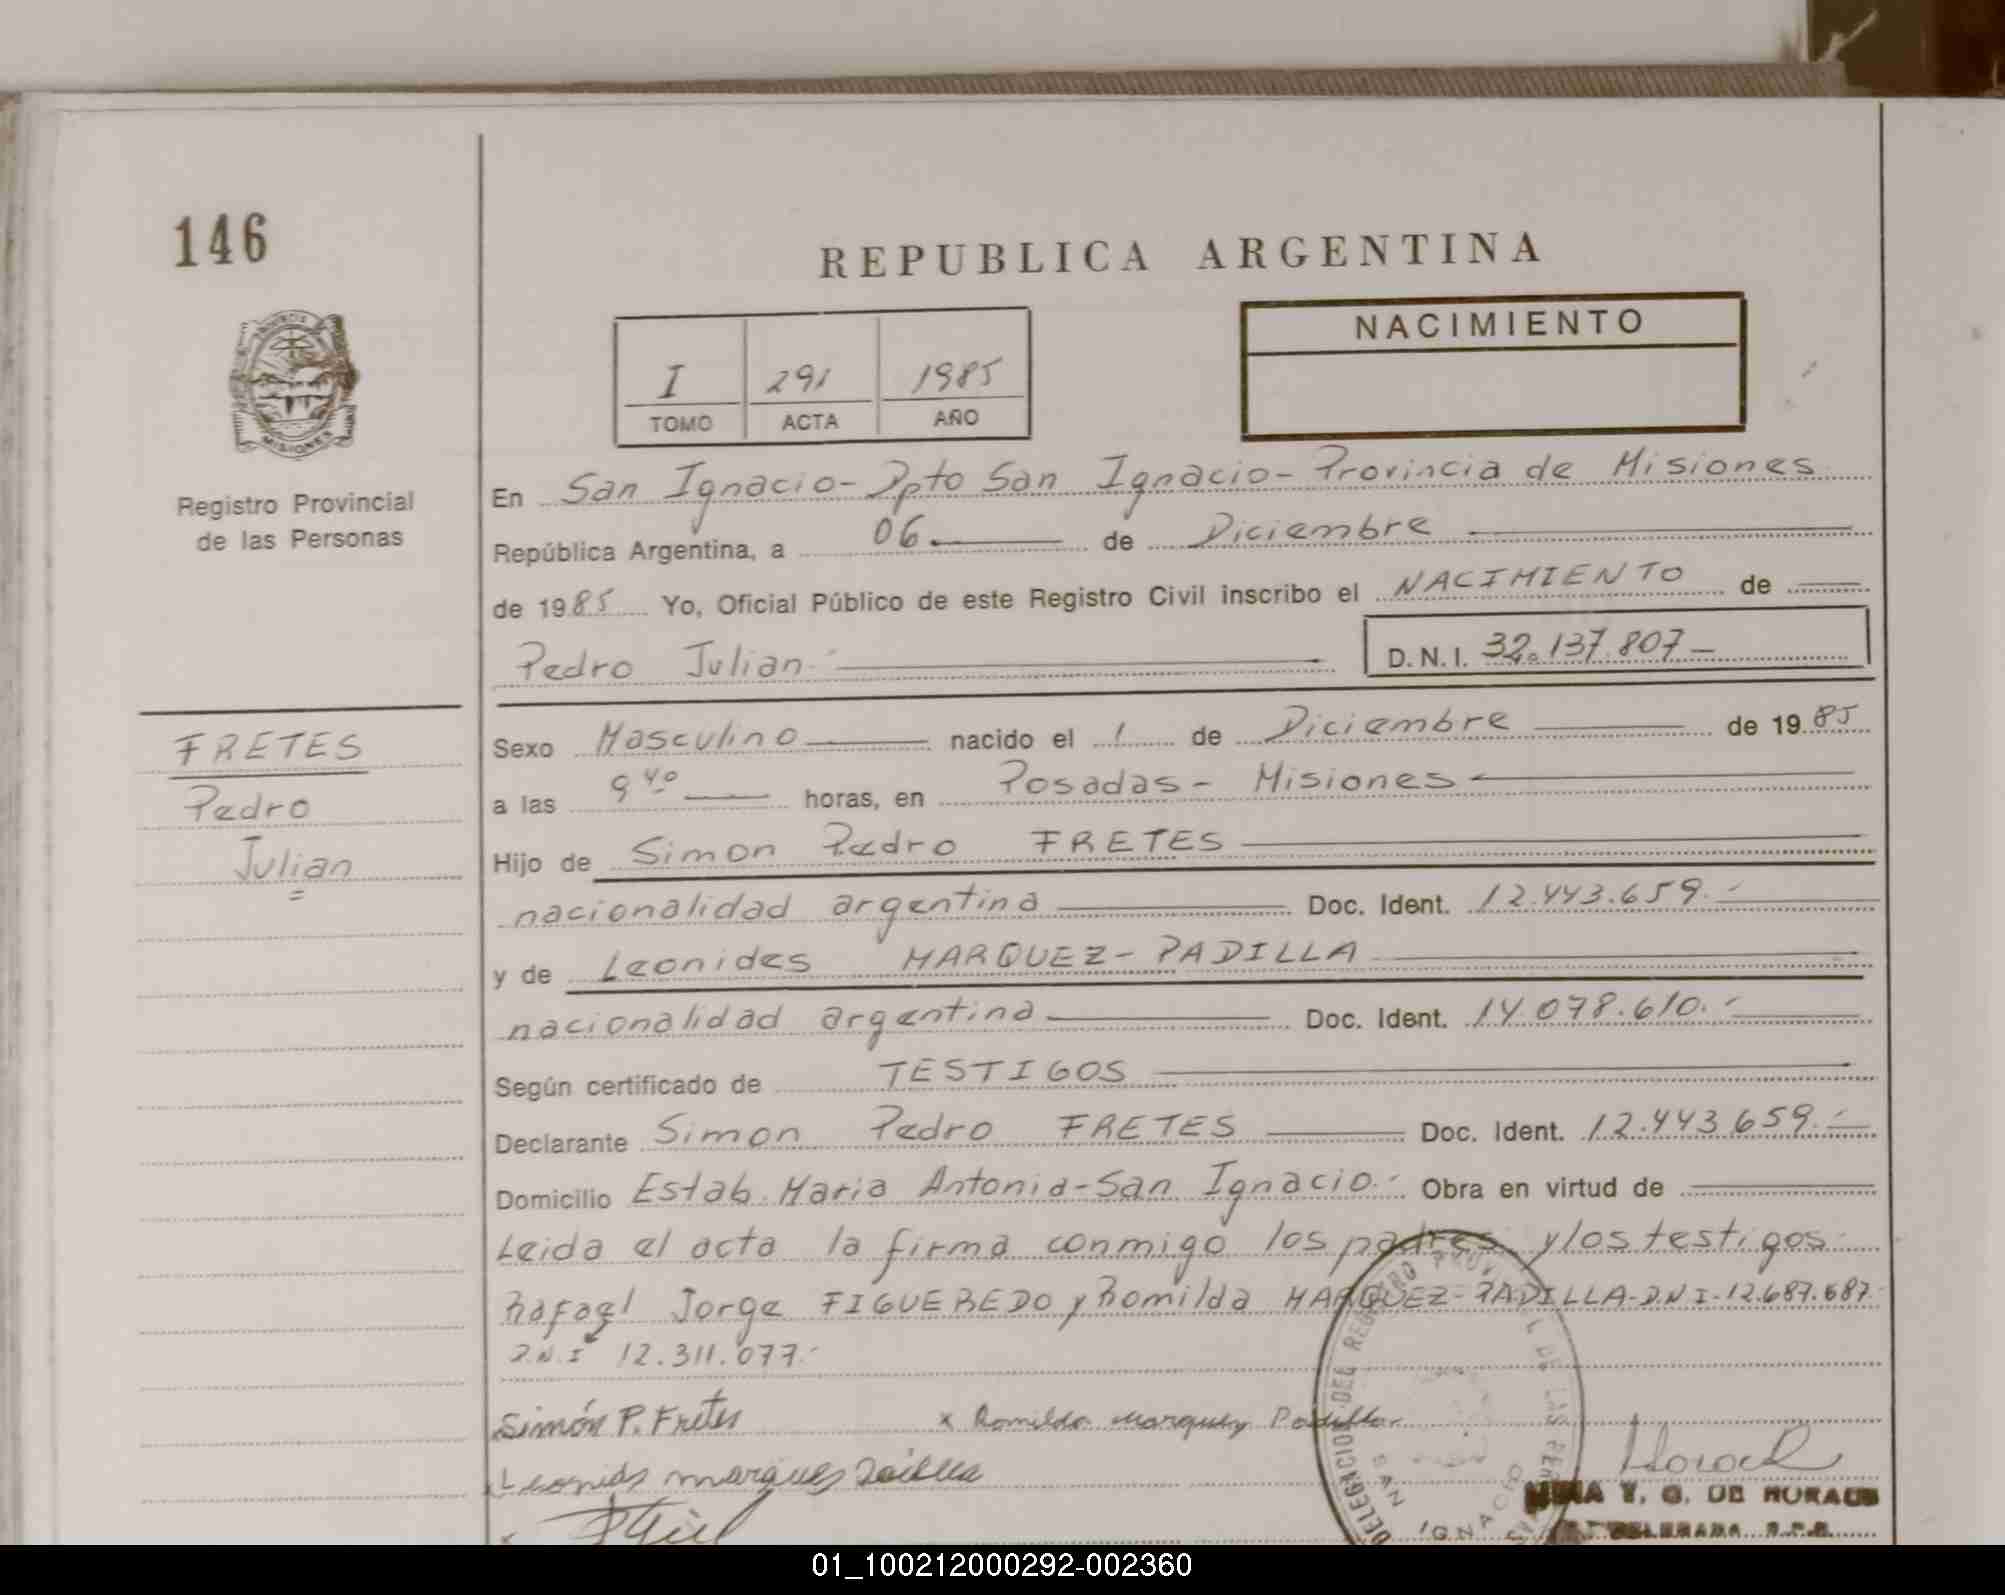 146
REPUBLICA ARGENTINA
PROVINCIA
MISIONES
I 291 1985
TOMO ACTA AÑO
NACIMIENTO
Registro Provincial
de las Personas
En San Ignacio-Dpto San Ignacio-Provincia de Misiones
República Argentina, a 06 de Diciembre
de 1985 Yo, Oficial Público de este Registro Civil inscribo el NACIMIENTO de
Pedro Julian D.N.I. 32.137.807-
FRETES
Pedro
Julian
Sexo Masculino nacido el 1 de Diciembre de 1985
a las 9 40 horas, en Posadas- Misiones
Hijo de Simon Pedro FRETES
nacionalidad argentina Doc. Ident. 12.443.659.-
y de Leonides MARQUEZ-PADILLA
nacionalidad argentina Doc. Ident. 14.078.610.-
Según certificado de TESTIGOS
Declarante Simon Pedro FRETES Doc. Ident. 12.443.659.-
Domicilio Estab. Maria Antonia-San Ignacio.- Obra en virtud de
Leida el acta la firma conmigo los padres y los testigos
Rafael Jorge FIGUEREDO y Romilda MARQUEZ-PADILLA-D.N.I.-12.687.687.-
D.N.I 12.311.077.-
Simón P. Fretes x Romilda Marquez Padilla
Leonides marques Padilla
DELEGACION DEL REGISTRO PROVINCIAL DE LAS
SAN IGNACIO
Y. G. DE MORAES
01_100212000292-002360